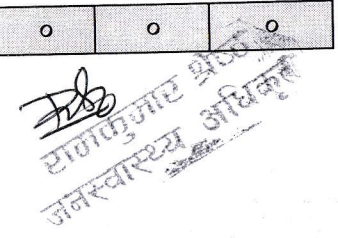 ० ० ०
रामकुमार श्रेष्ठ
जनस्वास्थ्य अधिकृत